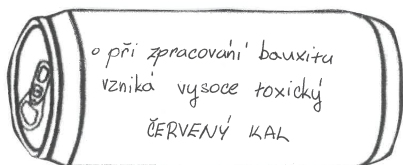 o při zpracování bauxitu
vzniká vysoce toxický
ČERVENÝ KAL